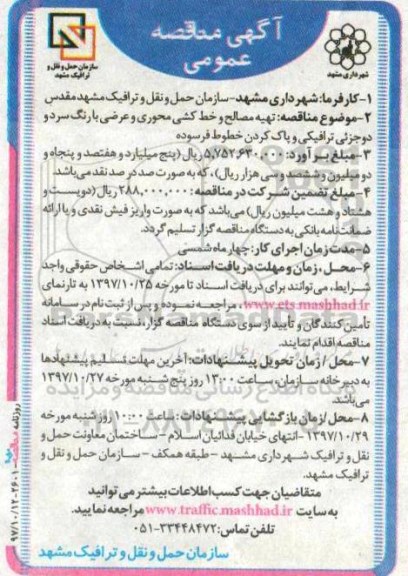 آگهی مناقصه
عمومی
سازمان حمل و نقل و
ترافیک مشهد
شهرداری مشهد
۱-کارفرما: شهرداری مشهد-سازمان حمل و نقل و ترافیک مشهد مقدس
۲-موضوع مناقصه: تهیه مصالح و خط کشی محوری و عرضی با رنگ سرد و
دوجزئی ترافیکی و پاک کردن خطوط فرسوده
۳-مبلغ برآورد: ۵,۷۵۲,۶۳۰,۰۰۰ ریال (پنج میلیارد و هفتصد و پنجاه و
دو میلیون و ششصد و سی هزار ریال)، که به صورت صد در صد نقد می باشد.
۴-مبلغ تضمین شرکت در مناقصه: ۲۸۸,۰۰۰,۰۰۰ ریال (دویست و
هشتاد و هشت میلیون ریال) می باشد که به صورت واریز فیش نقدی و یا ارائه
ضمانت نامه بانکی به دستگاه مناقصه گزار تسلیم گردد.
۵-مدت زمان اجرای کار: چهار ماه شمسی
۶-محل، زمان و مهلت دریافت اسناد: تمامی اشخاص حقوقی واجد
شرایط، می توانند برای دریافت اسناد تا مورخه ۱۳۹۷/۱۰/۲۵ به تارنمای
www.ets.mashhad.ir، مراجعه نموده و پس از ثبت نام در سامانه
تأمین کنندگان و تأیید از سوی دستگاه مناقصه گزار، نسبت به دریافت اسناد
مناقصه اقدام نمایند.
۷-محل/زمان تحویل پیشنهادات: آخرین مهلت تسلیم پیشنهادها
به دبیرخانه سازمان، ساعت ۱۳:۰۰ روز پنج شنبه مورخه ۱۳۹۷/۱۰/۲۷
می باشد.
۸-محل/زمان بازگشایی پیشنهادات: ساعت ۱۰:۰۰ روز شنبه مورخه
۱۳۹۷/۱۰/۲۹-انتهای خیابان فدائیان اسلام - ساختمان معاونت حمل و
نقل و ترافیک شهرداری مشهد - طبقه همکف - سازمان حمل و نقل و
ترافیک مشهد.
متقاضیان جهت کسب اطلاعات بیشتر می توانید
به سایت www.traffic.mashhad.ir مراجعه نمایید.
تلفن تماس: ۳۳۴۴۸۴۷۲-۰۵۱
سازمان حمل و نقل و ترافیک مشهد
روزنامه
۹۷/۱۰/۱۲-۲۶۰۱